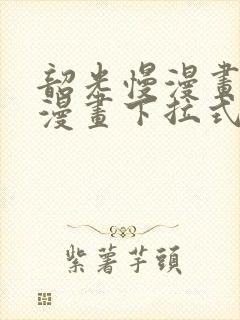 韶光慢漫畫
漫畫下拉式
紫薯芋頭